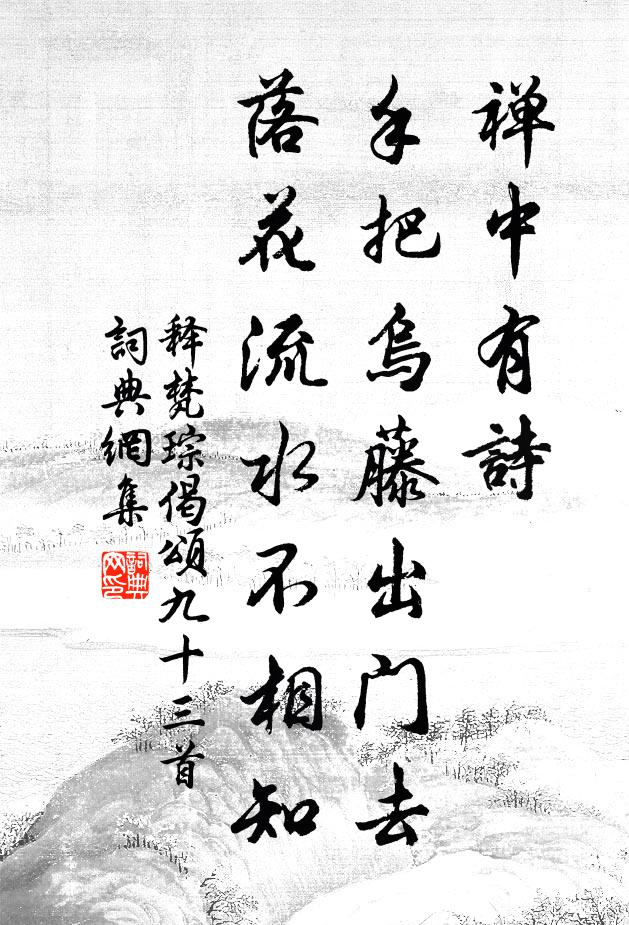 禅中有詩
手把烏藤出門去
落花流水不相知
释梵琮偈頌九十三首
詞典網集
詞典网印